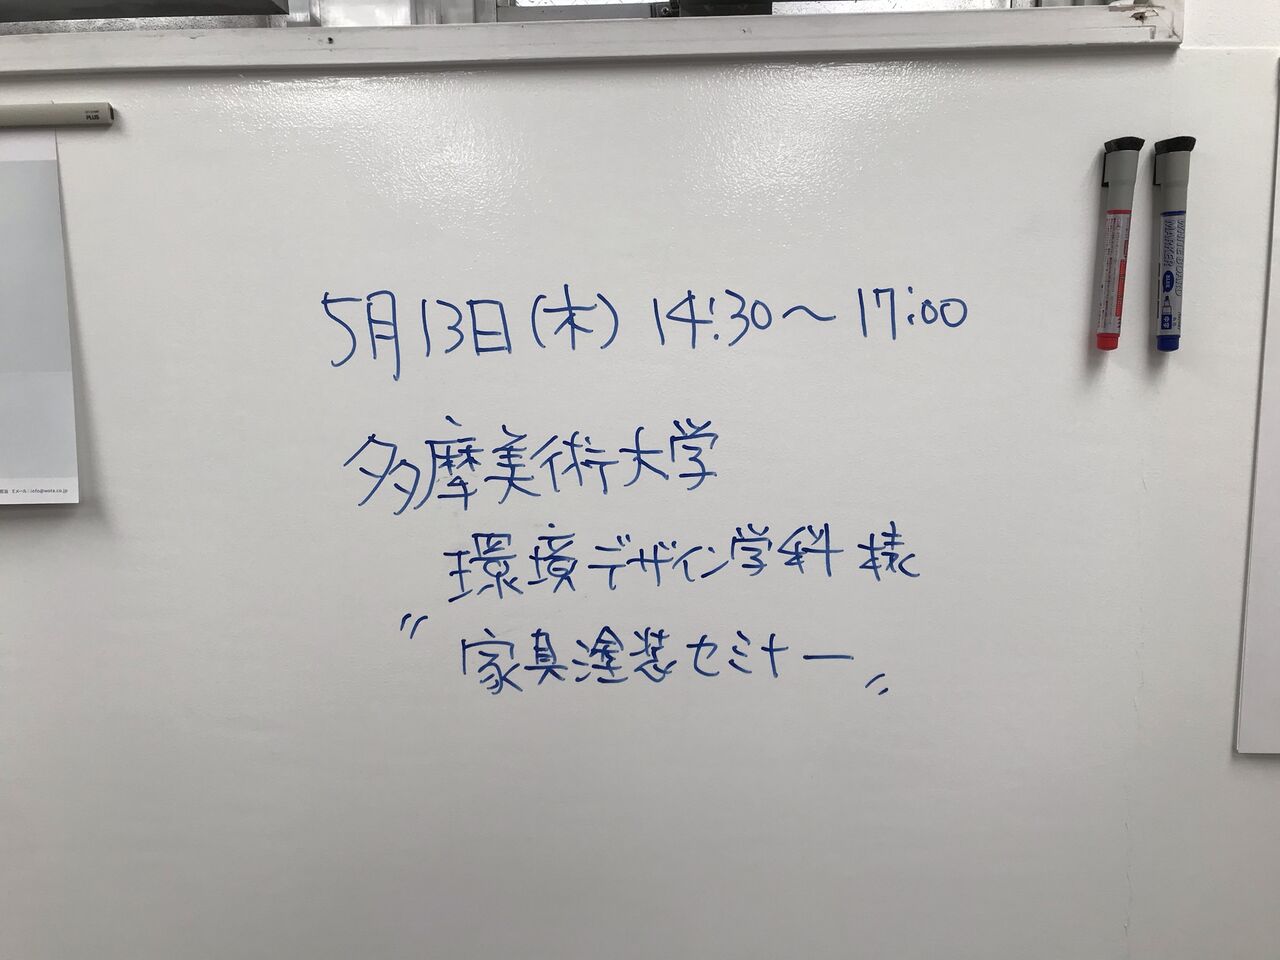 5月13日(木) 14:30〜17:00
多摩美術大学
環境デザイン学科 様
〃家具塗装セミナー〃
PLUS
Eメール:info@wota.co.jp
WHITEBOARD
MARKER